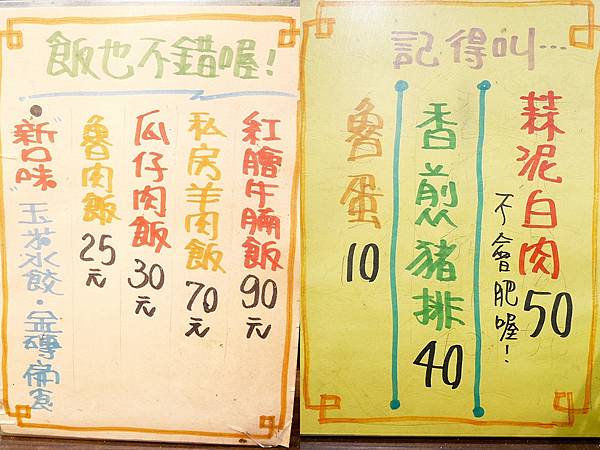 飯也不錯喔!
紅膾牛腩飯90元
私房羊肉飯70元
瓜仔肉飯30元
魯肉飯25元
"新口味"玉米水餃.金磚
記得叫…
蒜泥白肉50
不會肥喔!
香煎豬排40
魯蛋10